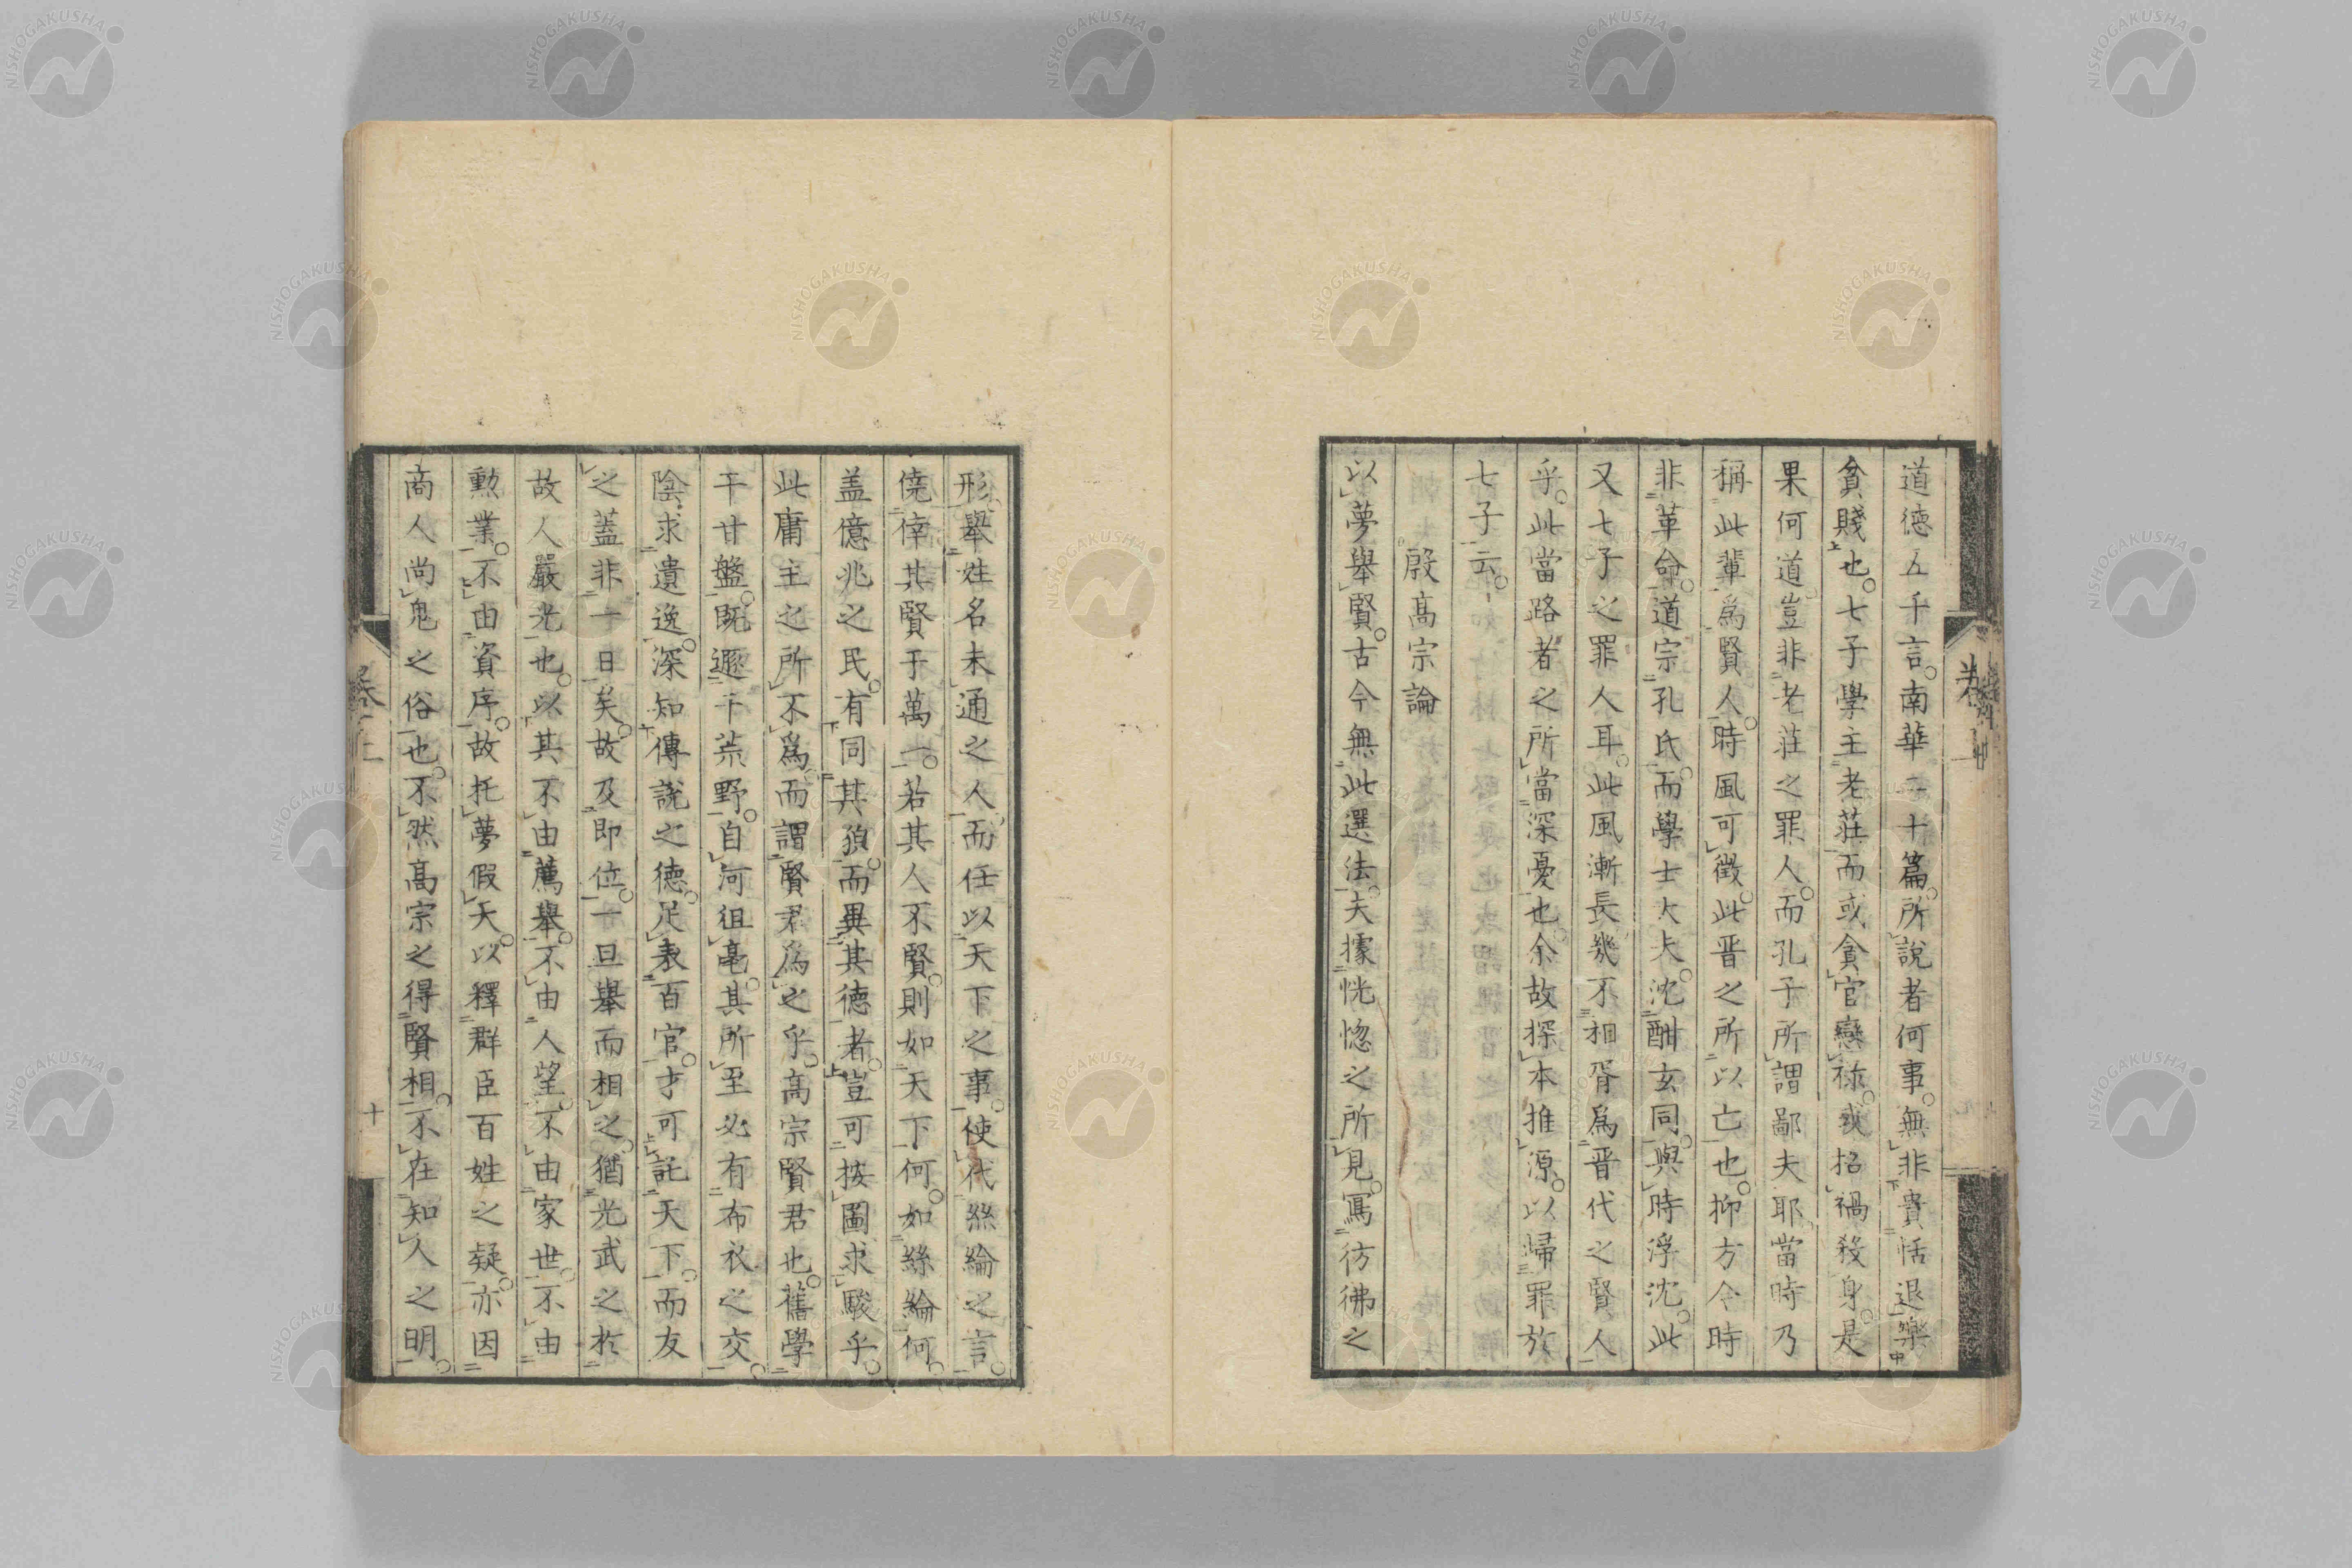 道德五千言。南華二十篇。所說者何事。無非貴恬退樂
貧賤也。七子學主老莊。而或貪官戀祿。或招禍殺身。是
果何道豈非老莊之罪人。而孔子所謂鄙夫耶。當時乃
稱此輩爲賢人。時風可徵。此晋之所以亡也。抑方今時
非革命。道宗孔氏。而學士大夫。沈酣玄同。與時浮沈。此
又七子之罪人耳。此風漸長。幾不相胥爲晋代之賢人
乎。此當路者之所當深憂也。余故探本推源。以歸罪於
七子云。
殷高宗論
以夢舉賢。古今無此選法。夫據恍惚之所見。寫彷彿之
形。舉姓名未通之人。而任以天下之事。使代絲綸之言。
僥倖其賢于萬一。若其人不賢。則如天下何。如絲綸何。
盖億兆之民。有同其貌。而異其德者。豈可按圖求駿乎。
此庸主之所不爲。而謂賢君爲之乎。高宗賢君也。舊學
于甘盤。既遯于荒野。自河徂亳。其所至必有布衣之交。
陰求遺逸。深知傅說之德。足表百官。才可託天下。而友
之蓋非一日矣。故及即位。一旦舉而相之。猶光武之於
故人嚴光也。以其不由薦舉。不由人望。不由家世。不由
勳業。不由資序。故托夢假天。以釋群臣百姓之疑。亦因
商人尚鬼之俗也。不然高宗之得賢相。不在知人之明。